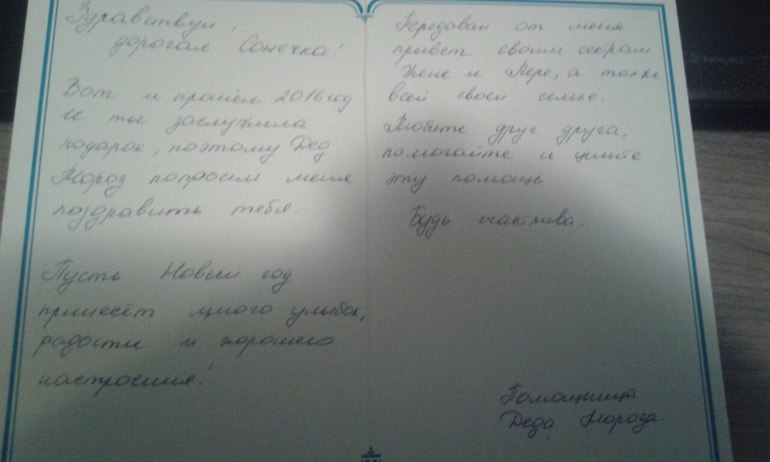 Здравствуй,
дорогая Сонечка!
Вот и прошёл 2016 год
И ты заслужила
подарок, поэтому Дед
Мороз попросил меня
поздравить тебя.
Пусть Новый год
принесёт много улыбок,
радости и хорошего
настроения!
Передавай от меня
привет своим сёстрам
Жене и Лере, а также
всей своей семье.
Любите друг друга,
помогайте и цените
эту помощь
Будь счастлива.
Помощница
Деда Мороза